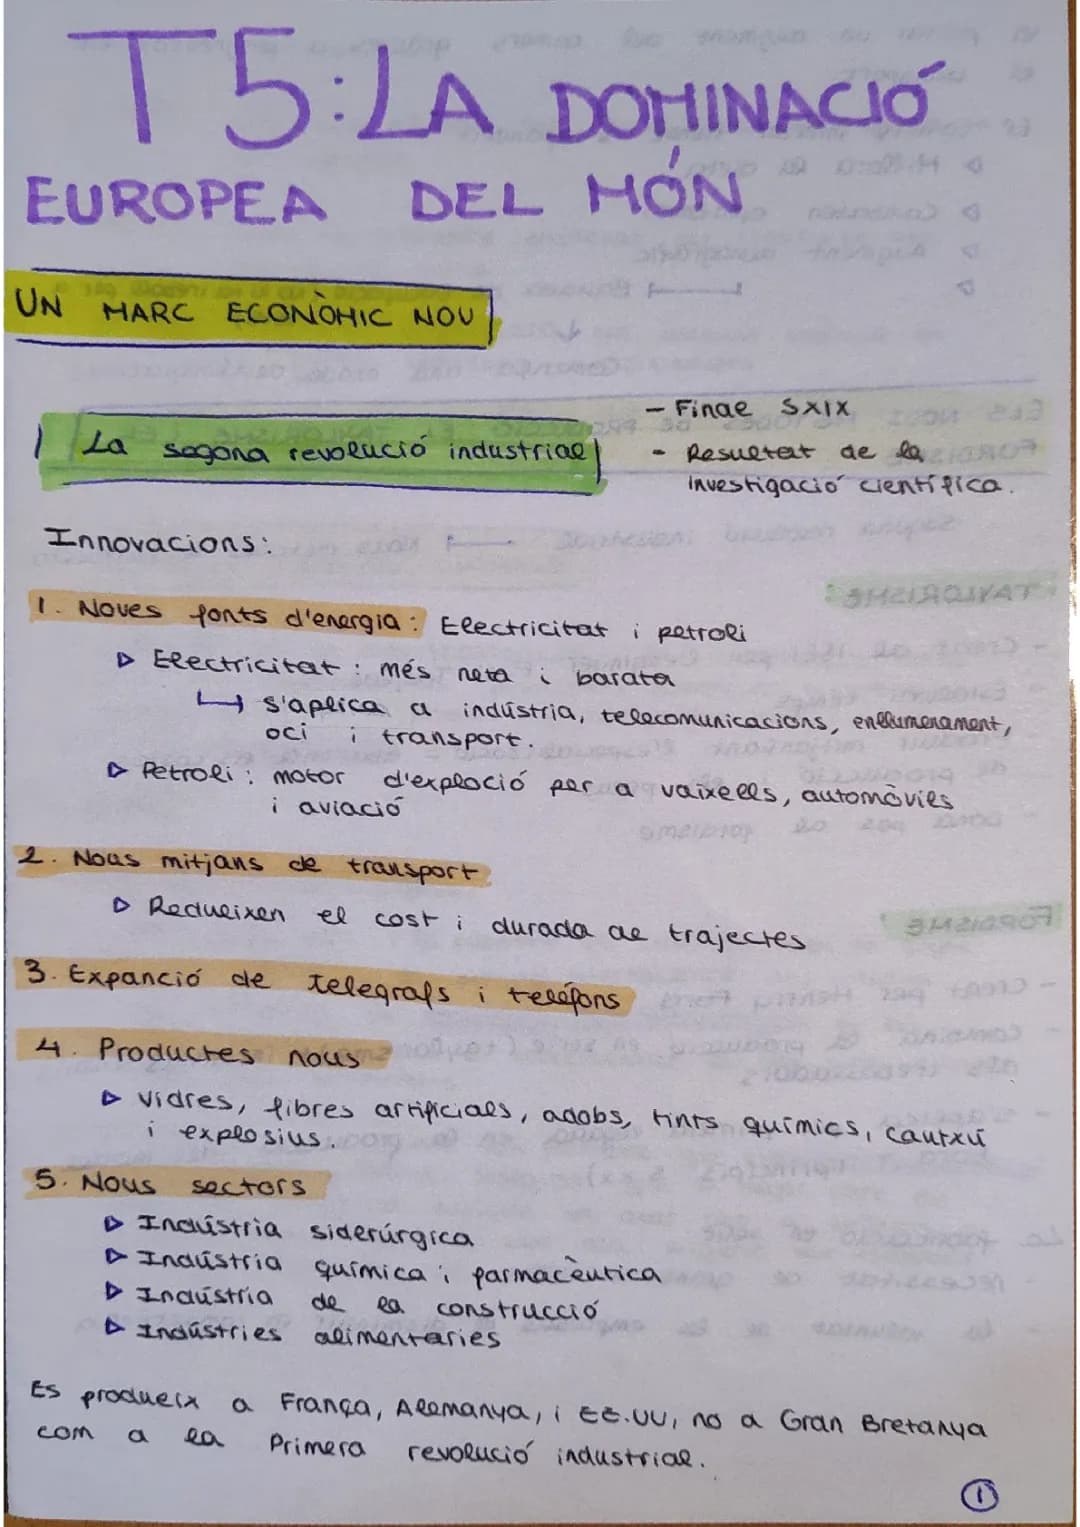 T5: LA DOMINACIÓ
EUROPEA DEL MÓN
UN MARC ECONÒMIC NOU
La segona revolució industrial
- Final SXIX
- Resultat de la
investigació científica.
Innovacions:
1. Noves fonts d'energia: Electricitat i petroli
▷ Electricitat: més neta i barata
↳ s'aplica a indústria, telecomunicacions, enllumenament,
oci i transport.
▷ Petroli: motor d'exploció per a vaixells, automòvils
i aviació
2. Nous mitjans de transport
▷ Redueixen el cost i durada de trajectes
3. Expanció de telegrafs i telèfons
4. Productes nous
▷ Vidres, fibres artificials, adobs, tints químics, cautxú
i explosius.
5. Nous sectors
▷ Indústria siderúrgica
▷ Indústria química i farmacèutica
▷ Indústria de la construcció
▷ Indústries alimentaries
Es produeix a França, Alemanya, i EE.UU, no a Gran Bretanya
com a la Primera revolució industrial.
1